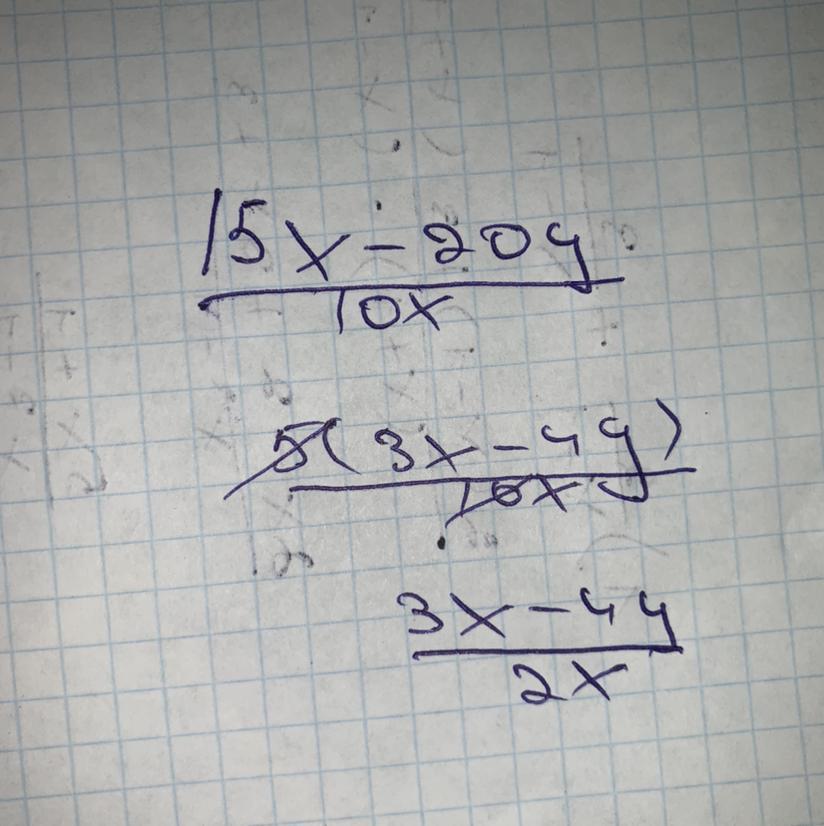 15x - 20y
10x
5(3x - 4y)
10x
3x - 4y
2x